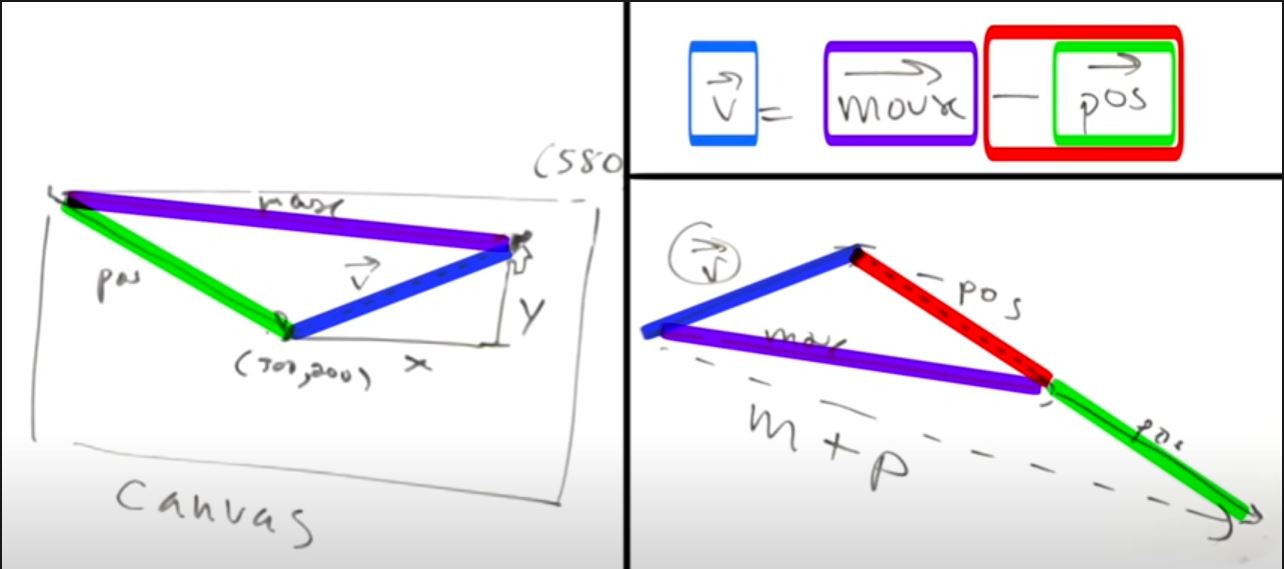 (580
mouse
pos
v
y
(300,200)
x
Canvas
v = mouse - pos
v
- pos
mouse
pos
m + p